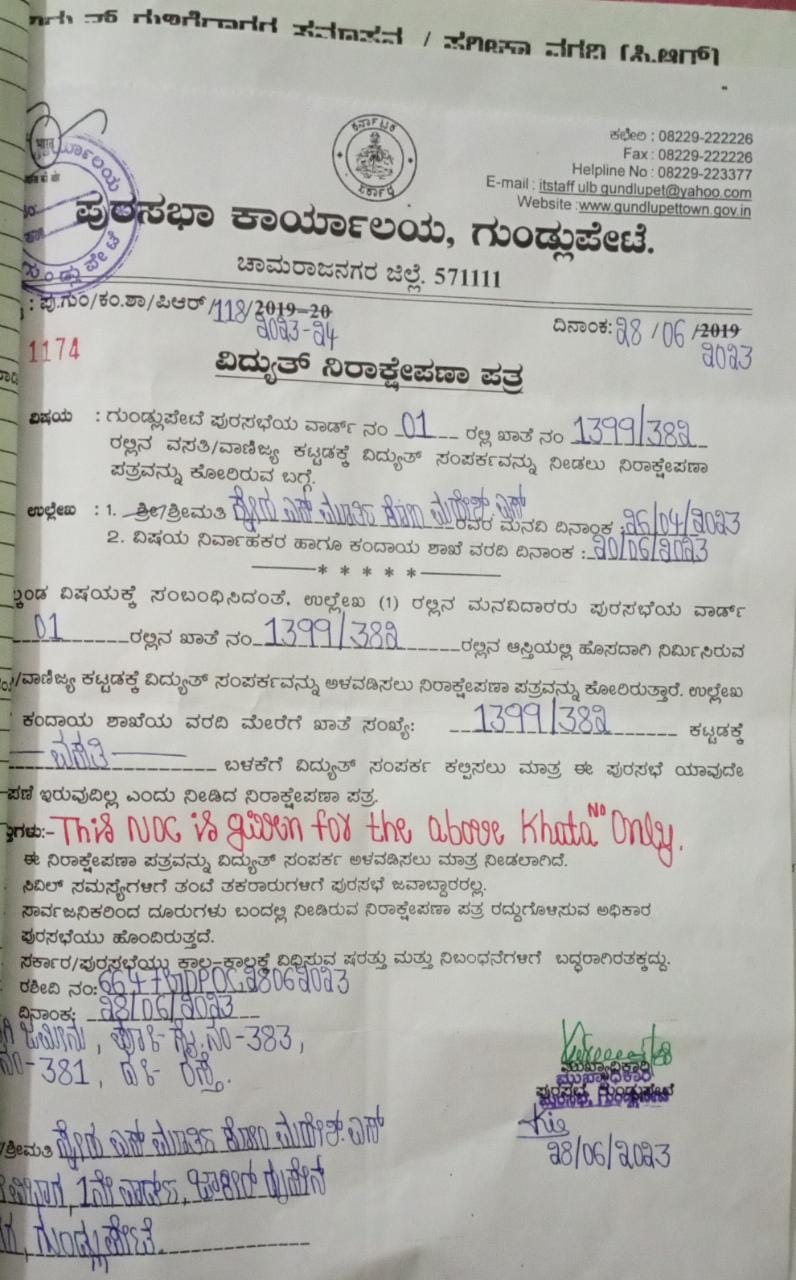 ಕರ್ನಾಟಕ
ಸರ್ಕಾರ
ಕಛೇರಿ : 08229-222226
Fax : 08229-222226
Helpline No : 08229-223377
E-mail : itstaff ulb gundlupet@yahoo.com
Website :www.gundlupettown.gov.in
ಪುರಸಭಾ ಕಾರ್ಯಾಲಯ, ಗುಂಡ್ಲುಪೇಟೆ.
ಚಾಮರಾಜನಗರ ಜಿಲ್ಲೆ. 571111
: ಪು.ಗುಂ/ಕಂ.ಶಾ/ಪಿಆರ್/118/2019-20
2023-24
ದಿನಾಂಕ: 28/06/2019
2023
1174
ವಿದ್ಯುತ್ ನಿರಾಕ್ಷೇಪಣಾ ಪತ್ರ
ವಿಷಯ : ಗುಂಡ್ಲುಪೇಟೆ ಪುರಸಭೆಯ ವಾರ್ಡ್ ನಂ 01 ರಲ್ಲಿ ಖಾತೆ ನಂ 1399/382
ರಲ್ಲಿನ ವಸತಿ/ವಾಣಿಜ್ಯ ಕಟ್ಟಡಕ್ಕೆ ವಿದ್ಯುತ್ ಸಂಪರ್ಕವನ್ನು ನೀಡಲು ನಿರಾಕ್ಷೇಪಣಾ
ಪತ್ರವನ್ನು ಕೋರಿರುವ ಬಗ್ಗೆ.
ಉಲ್ಲೇಖ : 1. ಶ್ರೀ/ಶ್ರೀಮತಿ ಎಸ್ ಮಹೇಶ್.ಎಸ್ ರವರ ಮನವಿ ದಿನಾಂಕ :26/04/2023
2. ವಿಷಯ ನಿರ್ವಾಹಕರ ಹಾಗೂ ಕಂದಾಯ ಶಾಖೆ ವರದಿ ದಿನಾಂಕ :20/06/2023
* * * * *
ವಿಷಯಕ್ಕೆ ಸಂಬಂಧಿಸಿದಂತೆ, ಉಲ್ಲೇಖ (1) ರಲ್ಲಿನ ಮನವಿದಾರರು ಪುರಸಭೆಯ ವಾರ್ಡ್
01 ರಲ್ಲಿನ ಖಾತೆ ನಂ 1399/382 ರಲ್ಲಿನ ಆಸ್ತಿಯಲ್ಲಿ ಹೊಸದಾಗಿ ನಿರ್ಮಿಸಿರುವ
/ವಾಣಿಜ್ಯ ಕಟ್ಟಡಕ್ಕೆ ವಿದ್ಯುತ್ ಸಂಪರ್ಕವನ್ನು ಅಳವಡಿಸಲು ನಿರಾಕ್ಷೇಪಣಾ ಪತ್ರವನ್ನು ಕೋರಿರುತ್ತಾರೆ. ಉಲ್ಲೇಖ
ಕಂದಾಯ ಶಾಖೆಯ ವರದಿ ಮೇರೆಗೆ ಖಾತೆ ಸಂಖ್ಯೇ: 1399/382 ಕಟ್ಟಡಕ್ಕೆ
ವಸತಿ ಬಳಕೆಗೆ ವಿದ್ಯುತ್ ಸಂಪರ್ಕ ಕಲ್ಪಿಸಲು ಮಾತ್ರ ಈ ಪುರಸಭೆ ಯಾವುದೇ
ಪಣೆ ಇರುವುದಿಲ್ಲ ಎಂದು ನೀಡಿದ ನಿರಾಕ್ಷೇಪಣಾ ಪತ್ರ.
ಗಳು:- This NOC is given for the above Khata No Only.
ಈ ನಿರಾಕ್ಷೇಪಣಾ ಪತ್ರವನ್ನು ವಿದ್ಯುತ್ ಸಂಪರ್ಕ ಅಳವಡಿಸಲು ಮಾತ್ರ ನೀಡಲಾಗಿದೆ.
ಸಿವಿಲ್ ಸಮಸ್ಯೆಗಳಿಗೆ ತಂಟೆ ತಕರಾರುಗಳಿಗೆ ಪುರಸಭೆ ಜವಾಬ್ದಾರರಲ್ಲ.
ಸಾರ್ವಜನಿಕರಿಂದ ದೂರುಗಳು ಬಂದಲ್ಲಿ ನೀಡಿರುವ ನಿರಾಕ್ಷೇಪಣಾ ಪತ್ರ ರದ್ದುಗೊಳಿಸುವ ಅಧಿಕಾರ
ಪುರಸಭೆಯು ಹೊಂದಿರುತ್ತದೆ.
ಸರ್ಕಾರ/ಪುರಸಭೆಯು ಕಾಲ-ಕಾಲಕ್ಕೆ ವಿಧಿಸುವ ಷರತ್ತು ಮತ್ತು ನಿಬಂಧನೆಗಳಿಗೆ ಬದ್ಧರಾಗಿರತಕ್ಕದ್ದು.
ರಶೀದಿ ನಂ:
ದಿನಾಂಕ: 28/06/2023
ನಂ-383,
ನಂ-381, ರಸ್ತೆ.
ಮುಖ್ಯಾಧಿಕಾರಿ
ಪುರಸಭೆ, ಗುಂಡ್ಲುಪೇಟೆ
28/06/2023
/ಶ್ರೀಮತಿ ಎಸ್ ಮಹೇಶ್.ಎಸ್
1ನೇ ವಾರ್ಡ್, ಹುಸೇನ್
ಗುಂಡ್ಲುಪೇಟೆ.